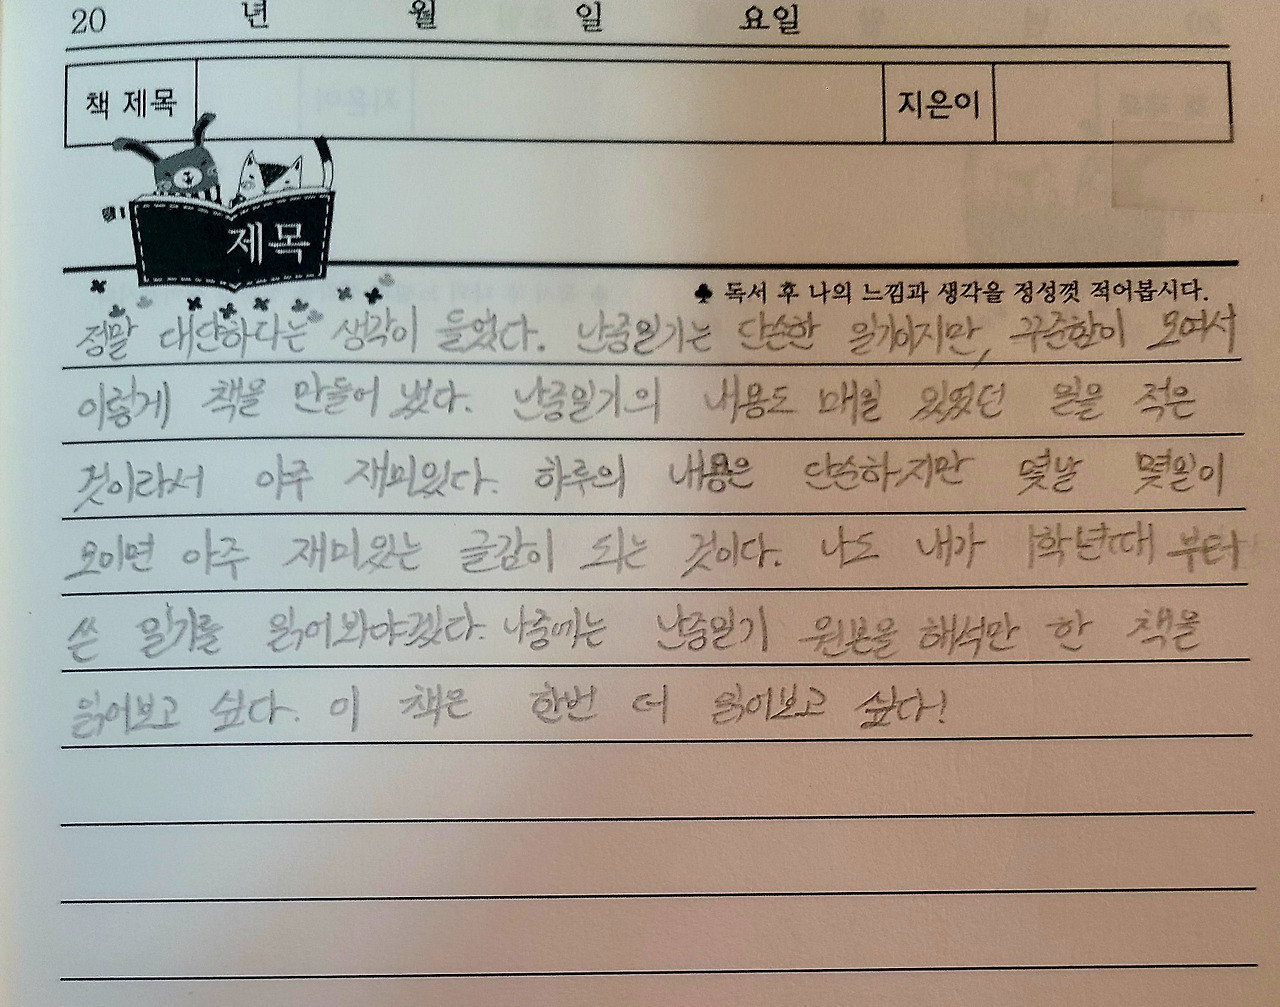 20 년 월 일 요일
책 제목 지은이
제목
♣ 독서 후 나의 느낌과 생각을 정성껏 적어봅시다.
정말 대단하다는 생각이 들었다. 난중일기는 단순한 일기이지만, 꾸준함이 모여서
이렇게 책을 만들어 냈다. 난중일기의 내용도 매일 있었던 일을 적은
것이라서 아주 재미있다. 하루의 내용은 단순하지만 몇날 몇일이
모이면 아주 재미있는 글감이 되는 것이다. 나도 내가 1학년때 부터
쓴 일기를 읽어봐야겠다. 나중에는 난중일기 원본을 해석만 한 책을
읽어보고 싶다. 이 책은 한번 더 읽어보고 싶다!